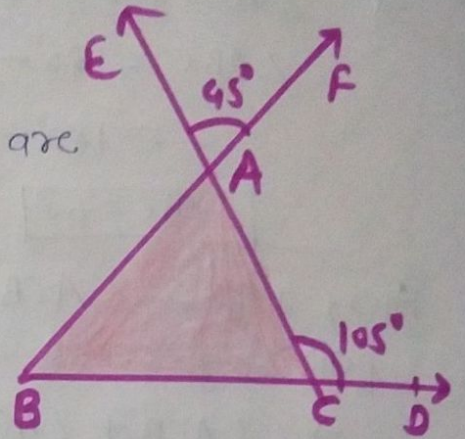 E
45°
F
are
A
105°
B
C
D